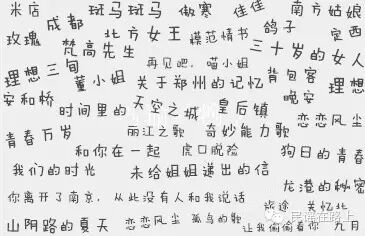 米店 斑马斑马 傲寒 佳佳 南方姑娘
成都 鸽子
玫瑰 北方女王 模范情书 安西
梵高先生 三十岁的女人
理想三旬 再见吧，喵小姐
董小姐 关于郑州的记忆 背包客 理想
安和桥 晚安
时间里的 天空之城 皇后镇
恋恋风尘
青春万岁 丽江之歌 奇妙能力歌
和你在一起 虎口脱险 狗日的青春
我们的时光 未给姐姐递出的信
龙港的秘密
你离开了南京，从此没有人和我说话
旅途 关忆北
山阴路的夏天 恋恋风尘 孤鸟的歌
让我偷偷看你 九月
民谣在路上